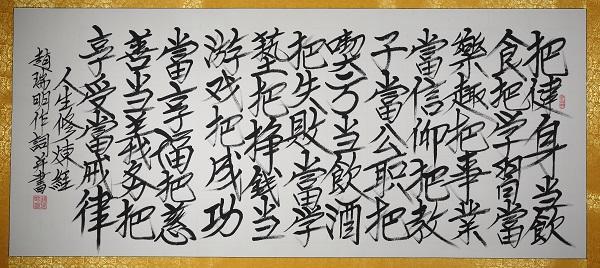 把健身当飲
食把学習當
樂趣把事業
當信仰把教
子當公职把
喫亏当飲酒
把失敗當学
藝把挣錢当
游戏把成功
當享福把慈
善当義务把
享受當戒律
人生修煉經
趙瑞明作詞并書